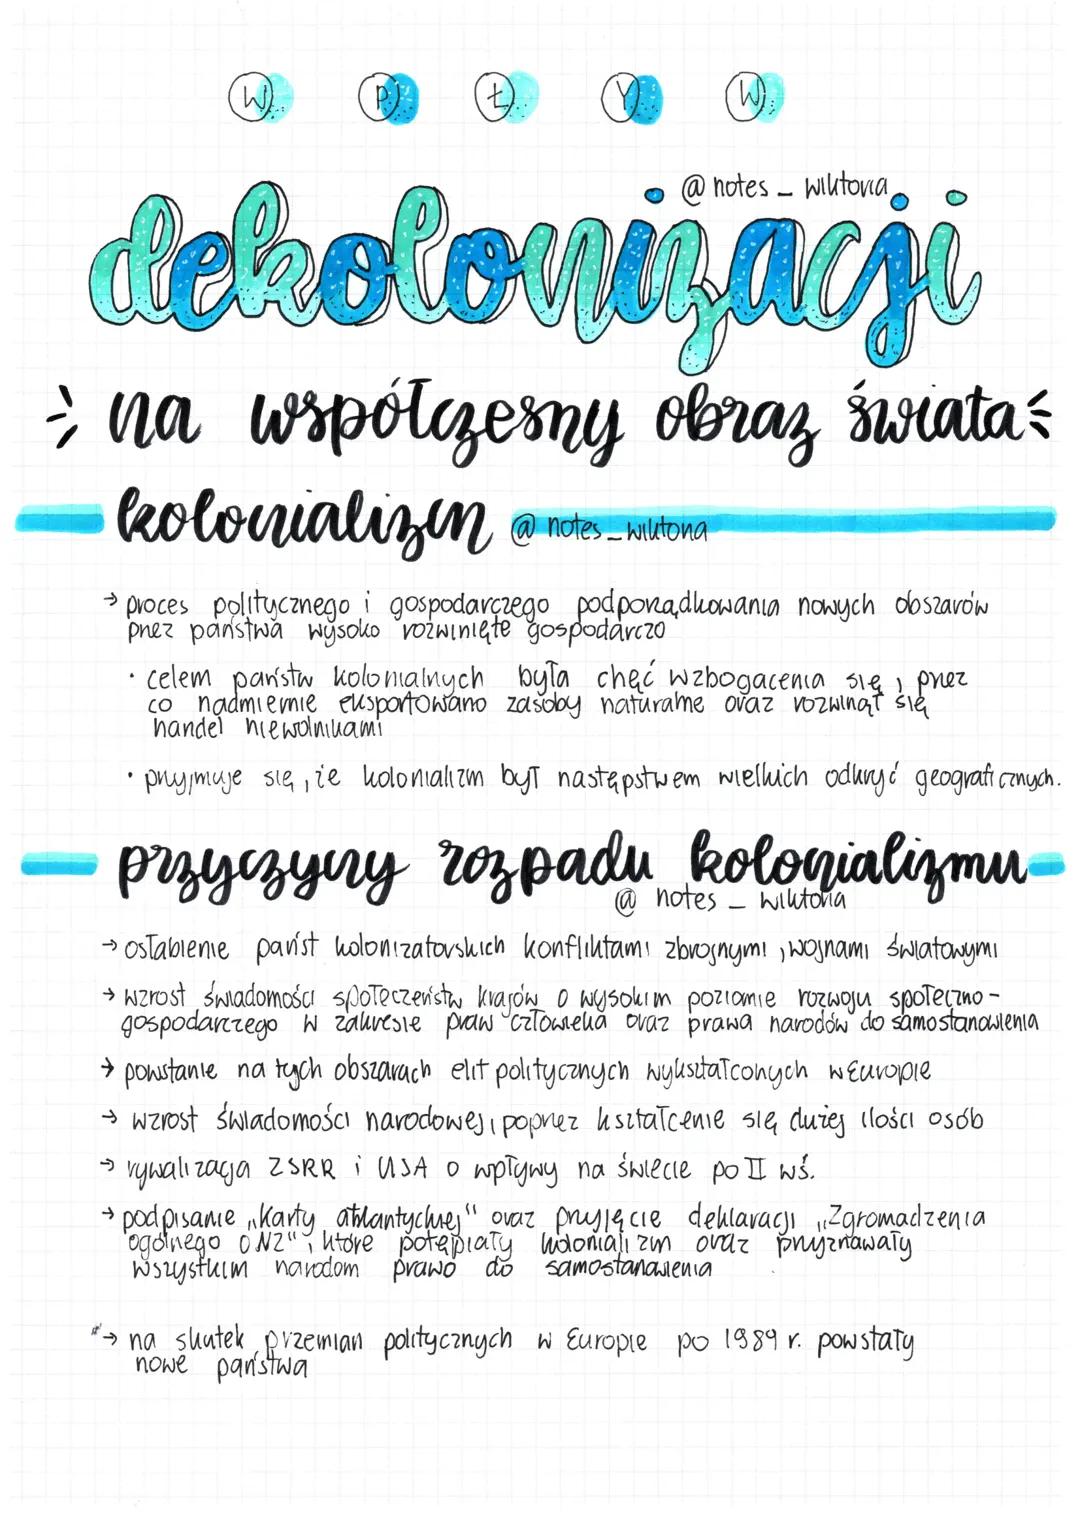 WPŁYW
@notes_wiktoria
dekolonizacji
na współczesny obraz świata
kolonializm @notes_wiktoria
→ proces politycznego i gospodarczego podporządkowania nowych obszarów
przez państwa wysoko rozwinięte gospodarczo
• celem państw kolonialnych była chęć wzbogacenia się, przez
co nadmiernie eksportowano zasoby naturalne oraz rozwinął się
handel niewolnikami
• przyjmuje się, że kolonializm był następstwem wielkich odkryć geograficznych.
przyczyny rozpadu kolonializmu
@notes_wiktoria
→ osłabienie państ kolonizatorskich konfliktami zbrojnymi, wojnami światowymi
→ wzrost świadomości społeczeństw krajów o wysokim poziomie rozwoju społeczno-
gospodarczego w zakresie praw człowieka oraz prawa narodów do samostanowienia
→ powstanie na tych obszarach elit politycznych wykształconych w Europie
→ wzrost świadomości narodowej, poprzez kształcenie się dużej ilości osób
→ rywalizacja ZSRR i USA o wpływy na świecie po II wś.
→ podpisanie „Karty atlantyckiej" oraz przyjęcie deklaracji „Zgromadzenia
ogólnego ONZ", które potępiały kolonializm oraz przyznawały
wszystkim narodom prawo do samostanowienia
*→ na skutek przemian politycznych w Europie po 1989 r. powstały
nowe państwa